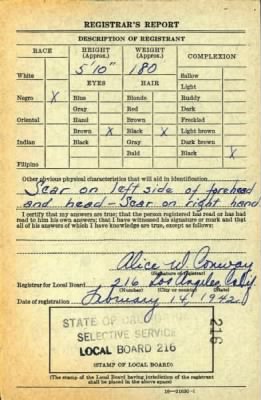 REGISTRAR'S REPORT
DESCRIPTION OF REGISTRANT
RACE HEIGHT (Approx.) WEIGHT (Approx.) COMPLEXION
White 5'10" 180 Sallow
EYES HAIR Light
Negro X Blue Blonde Ruddy
Gray Red Dark
Oriental Hazel Brown Freckled
Brown X Black X Light brown
Indian Black Gray Dark brown
Bald Black X
Filipino
Other obvious physical characteristics that will aid in identification
Scar on left side of forehead
and head - Scar on right hand
I certify that my answers are true; that the person registered has read or has had
read to him his own answers; that I have witnessed his signature or mark and that
all of his answers of which I have knowledge are true, except as follows:
Alice W. Conway
(Signature of registrar)
Registrar for Local Board 216 Los Angeles Calif.
(Number) (City or county) (State)
Date of registration February 14, 1942
STATE OF
SELECTIVE SERVICE
LOCAL BOARD 216
216
(STAMP OF LOCAL BOARD)
(The stamp of the Local Board having jurisdiction of the registrant
shall be placed in the above space)